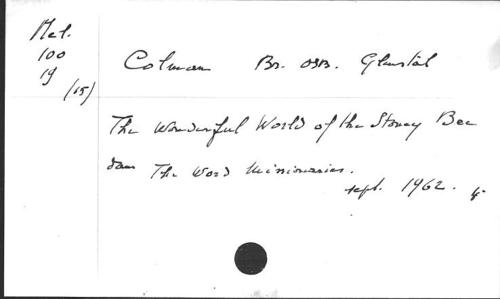 Mel.
100
19
(15)
Colman Br. OSB. Glenstal
The Wonderful World of the Honey Bee
The Word Missionaries.
sept. 1962.